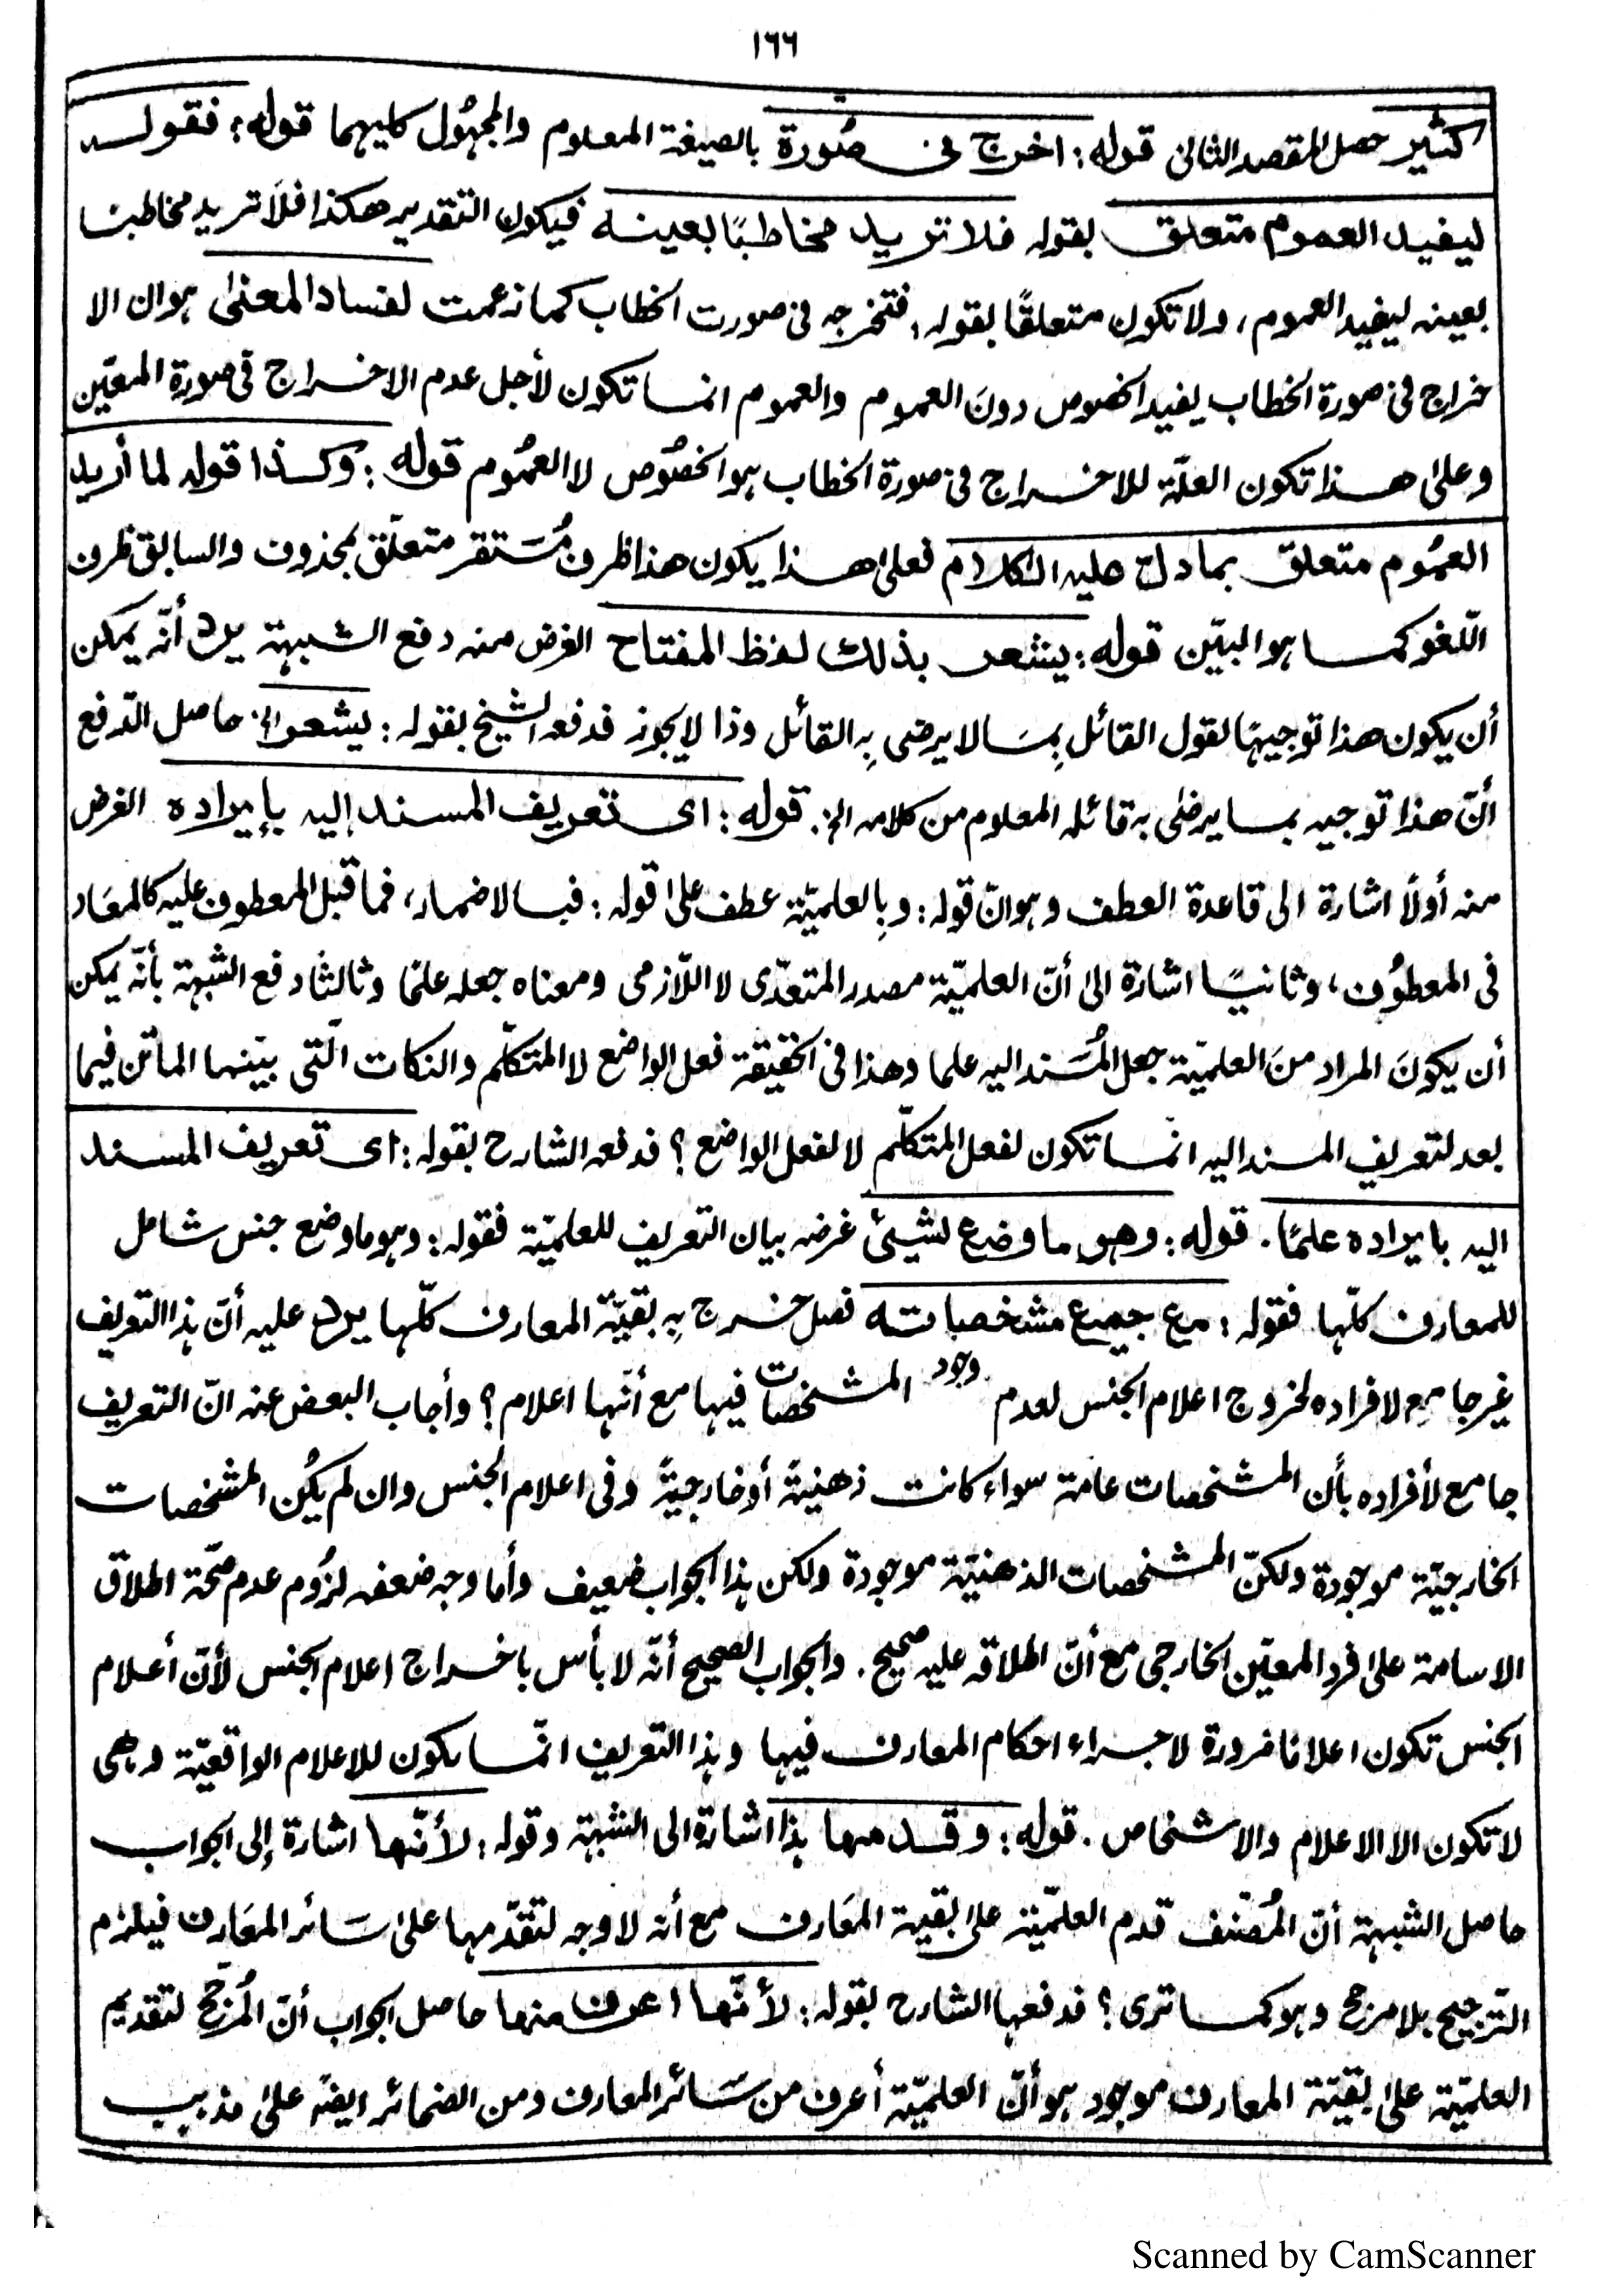 ١٦٦
كثير حصل المقصد الثانى قوله: اخرج فى صُورة بالصيغة المعلوم والمجهُول كليهما قوله: فقوله
ليفيد العموم متعلق بقوله فلا تريد مخاطبًا بعينه فيكون التقدير هكذا فلا تريد مخاطبا
بعينه ليفيد العموم، ولا تكون متعلقًا بقوله، فتخرجه فى صورت الخطاب كما زعمت لفساد المعنىٰ هو ان الا
خراج فى صورة الخطاب يفيد الخصوص دونَ العموم والعموم انما تكون لأجل عدم الاخراج فى صورة المعيّن
وعلىٰ هذا تكون العلّة للاخراج فى صورة الخطاب هو الخصُوص لا العمُوم قوله: وكذا قوله لما أريد
العمُوم متعلق بما دل عليه الكلام فعلىٰ هذا يكون هذا ظرف مُستقر متعلّق بمحذوف والسابق ظرف
اللّغو كما هو البيّن قوله: يشعر بذلك لفظ المفتاح الغرض منه دفع الشبهة يرد أنّه يمكن
أن يكون هذا توجيهًا لقول القائل بِمَا لا يرضى بِه القائل وذا لا يجوز فدفعه الشيخ بقوله: يشعر الخ حاصل الدّفع
أنّ هذا توجيه بما يرضٰى به قائله المعلوم من كلامه الخ. قوله: اى تعريف المسند إليه بإيراده الغرض
منه أولًا اشارة الى قاعدة العطف وهو انّ قوله: وبِالعلميّة عطف علىٰ قوله: فبالاضمار، فما قبل المعطوف عليه كالمعَاد
فى المعطوُف، وثانيًا اشارة الىٰ أنّ العلميّة مصدر المتعدّى لا اللّازمى ومعناه جعله علمًا وثالثًا دفع الشبهة بأنّه يمكن
أن يكونَ المراد منَ العلميّة جعل المُسَند اليه علما وهذا فى الحقيقة فعل الواضع لا المتكلّم والنكات الّتى بيّنها الماتن فيما
بعد لتعريف المسند اليه انّما تكون لفعل المتكلّم لا لفعل الواضع؟ فدفعه الشارح بقوله: اى تعريف المسند
اليه بايراده علمًا. قوله: وهو ما وضع لشيئ غرضه بيان التعريف للعلميّة فقوله: وهو ما وضع جنس شامل
للمعارف كلّها فقوله: مع جميع مشخصاته فصل خرج بِه بقيّة المعارف كلّها يرد عليه أنّ هذا التعريف
غير جامع لافراده لخروج اعلام الجنس لعدم وجود المشخصات فيها مع أنّها اعلام؟ وأجاب البعض عنه انّ التعريف
جامع لأفراده بأن المشخصات عامة سواء كانت ذهنيةً أو خارجيةً وفى اعلام الجنس وان لم يكُن المشخصات
الخارجيّة موجودة ولكنّ المشخصات الذهنيّة موجودة ولكن هذا الجواب ضعيف وأما وجه ضعفه لزُوم عدم صحّة اطلاق
الاسامة علىٰ فرد المعيّن الخارجى مع أنّ اطلاقه عليه صحيح. والجواب الصحيح أنّه لا بأس باخراج اعلام الجنس لأنّ أعلام
الجنس تكون اعلامًا ضرورة لاجراء احكام المعارف فيها وهذا التعريف انّما يكون للاعلام الواقعيّة وهى
لا تكون الا الاعلام والاشخاص. قوله: وقدمها هذا اشارة الى الشبهة وقوله: لأنّها اشارة إلى الجواب
حاصل الشبهة أنّ المُصنّف قدم العلميّة علىٰ بقية المعَارف مع أنه لا وجه لتقدّمها علىٰ سَائر المعَارف فيلزم
التّرجيح بلا مرجح وهو كما ترى؟ فدفعها الشارح بقوله: لأنّها اعرف منها حاصل الجواب أنّ المُرجّح لتقديم
العلميّة علىٰ بقيّة المعارف موجود هو أنّ العلميّة أعرف من سَائر المعارف ومن الضمائر ايضًا علىٰ مذهب
Scanned by CamScanner